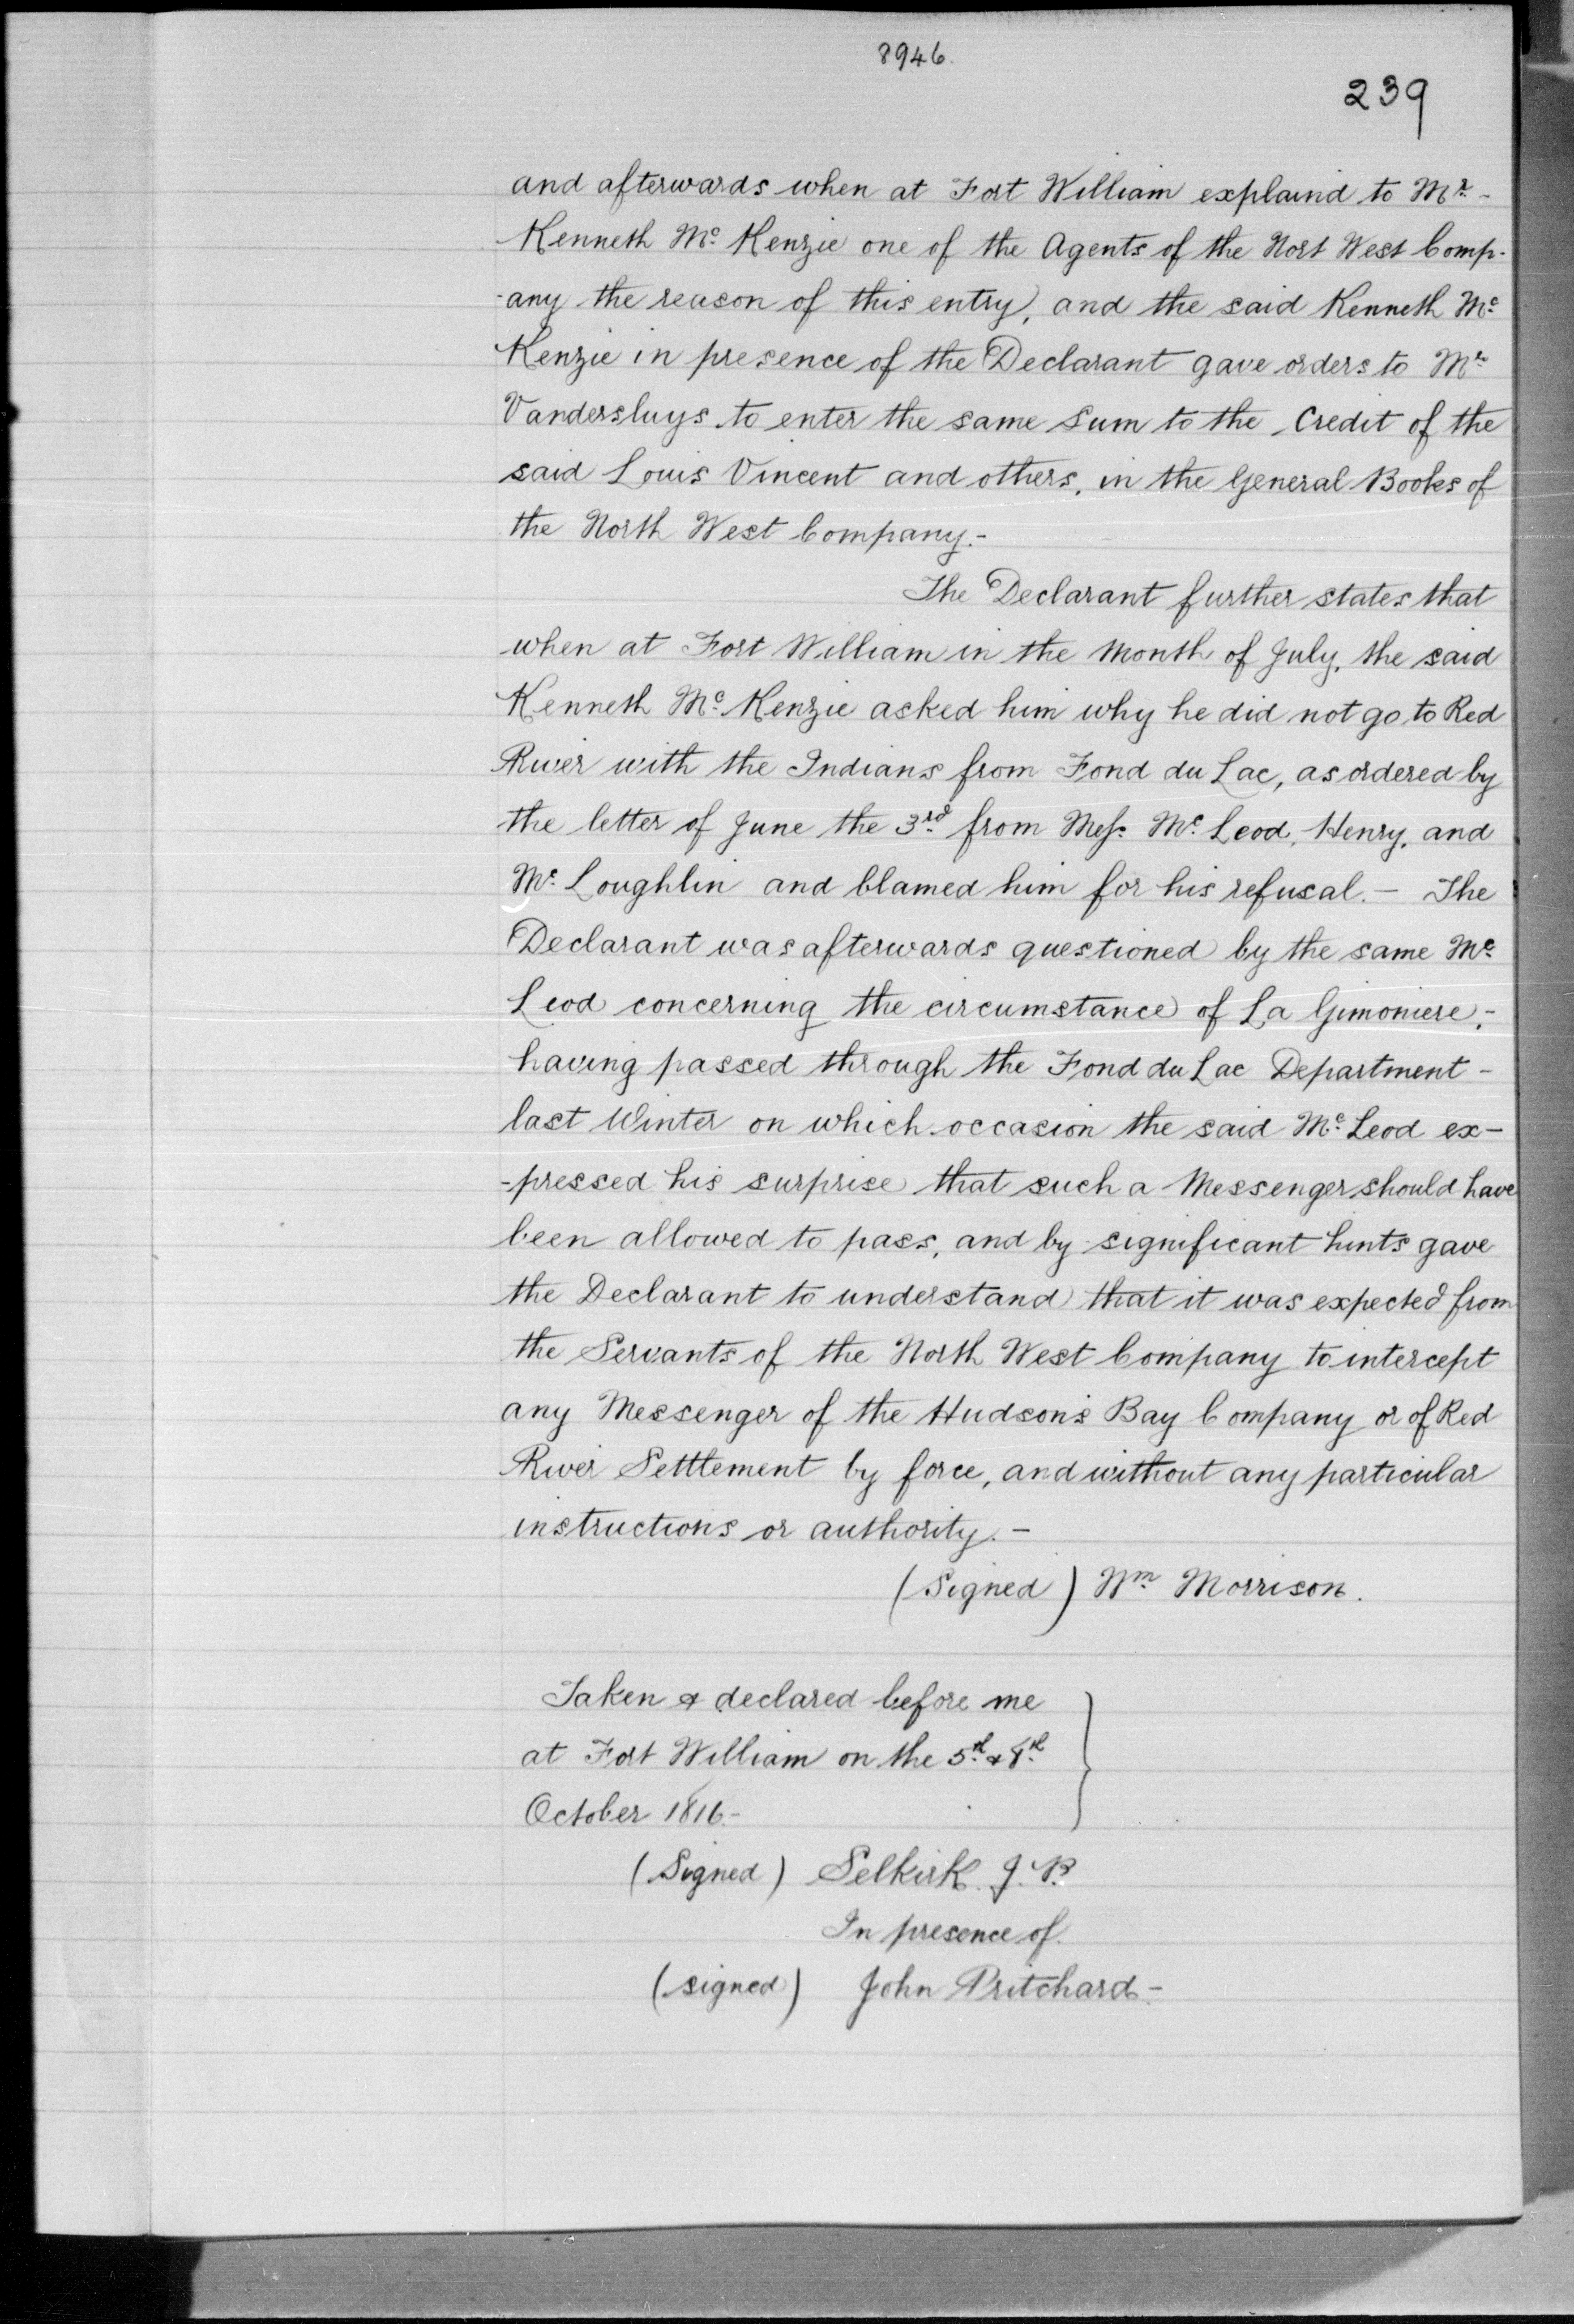 8946.
239
and afterwards when at Fort William explaind to Mr. -
Kenneth Mc. Kenzie one of the Agents of the Nort West Comp-
-any the reason of this entry, and the said Kenneth Mc.
Kenzie in presence of the Declarant gave orders to Mr.
Vandersluys to enter the same Sum to the Credit of the
said Louis Vincent and others, in the General Books of
the North West Company.-
The Declarant further states that
when at Fort William in the Month of July, the said
Kenneth Mc. Kenzie asked him why he did not go to Red
River with the Indians from Fond du Lac, as ordered by
the letter of June the 3rd. from Mess. Mc. Leod, Henry, and
Mc. Loughlin and blamed him for his refusal. - The
Declarant was afterwards questioned by the same Mc.
Leod concerning the circumstance of La Gimoniere,-
having passed through the Fond du Lac Department -
last Winter on which occasion the said Mc. Leod ex-
-pressed his surprise that such a Messenger should have
been allowed to pass, and by significant hints gave
the Declarant to understand that it was expected from
the Servants of the North West Company to intercept
any Messenger of the Hudson's Bay Company or of Red
River Setttement by force, and without any particular
instructions or authority. -
(Signed) Wm Morrison.
Taken & declared before me
at Fort William on the 5th. & 8th.
October 1816.-
(Signed) Selkirk. J. P.
In presence of
(signed) John Pritchard -